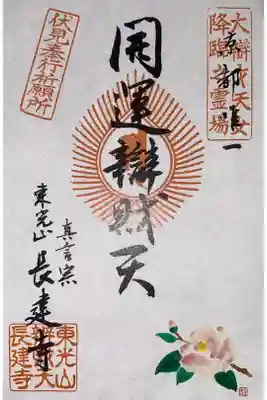 大辯財天女
降臨霊場
京都唯一
開運辯財天
伏見奉行祈願所
真言宗
東光山 長建寺
東光山
辯財天
長建寺